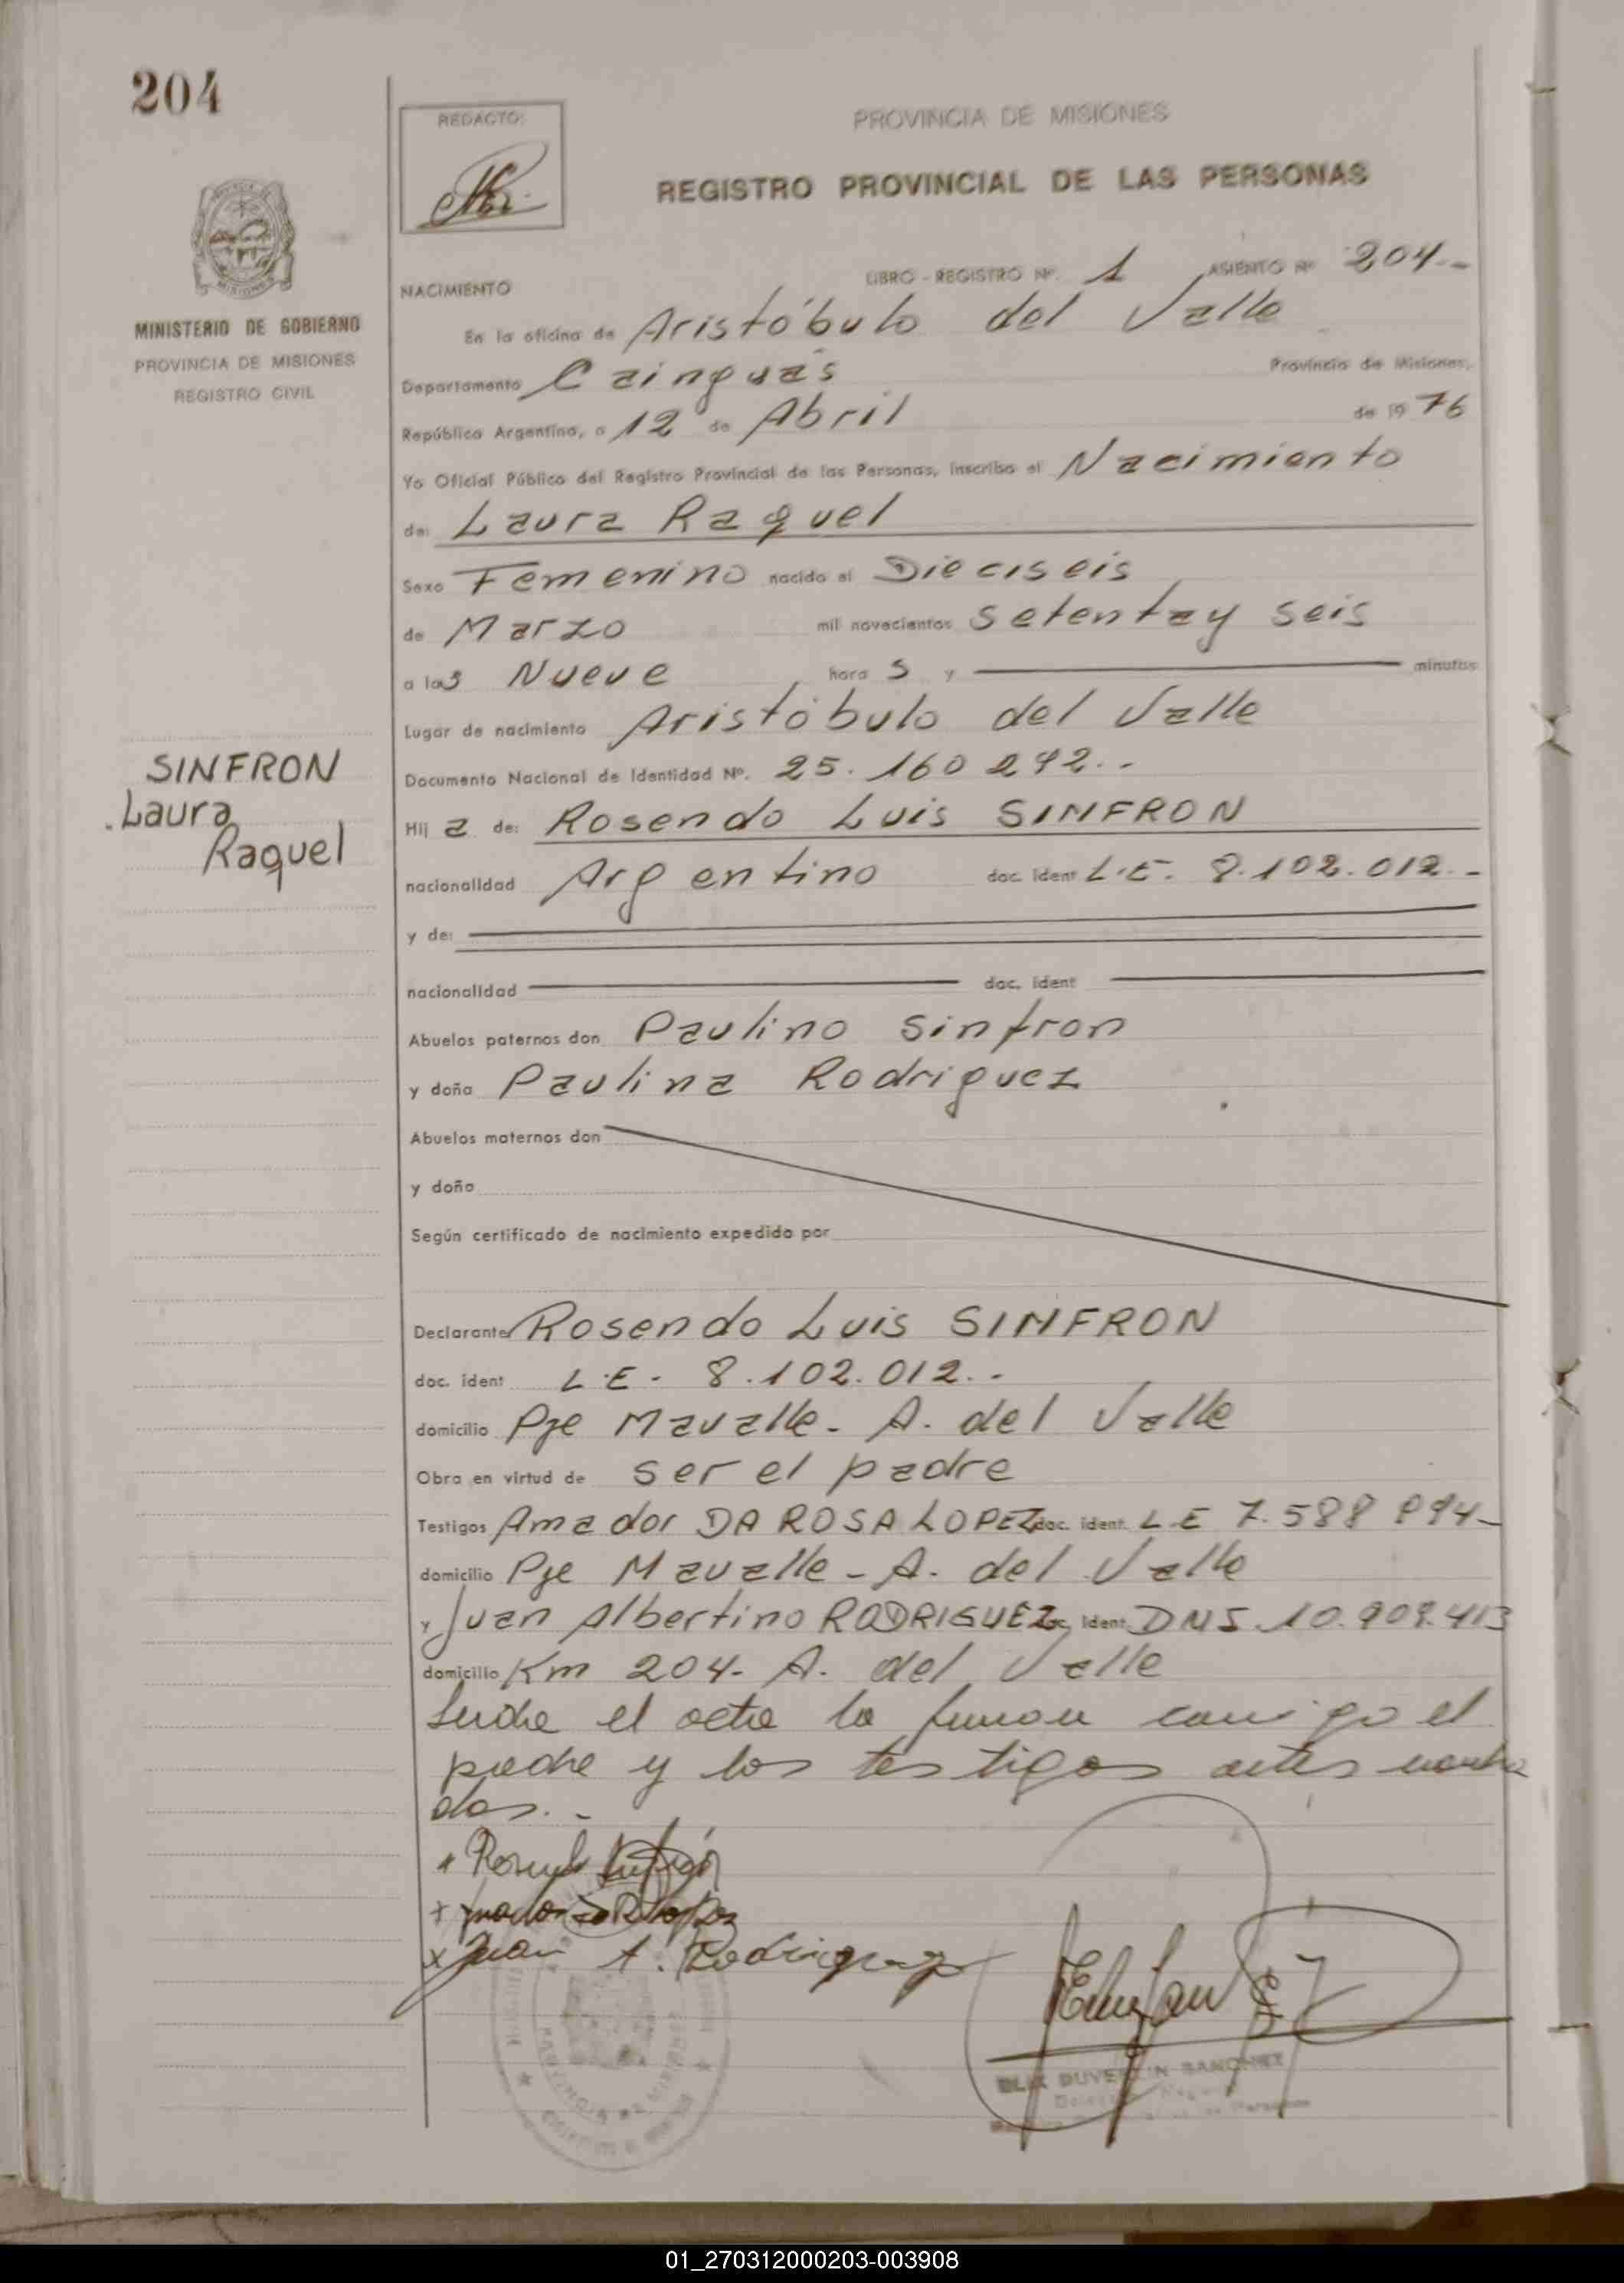 204
REDACTO:
PROVINCIA DE MISIONES
REGISTRO PROVINCIAL DE LAS PERSONAS
MINISTERIO DE GOBIERNO
PROVINCIA DE MISIONES
REGISTRO CIVIL
NACIMIENTO LIBRO - REGISTRO Nº. 1 ASIENTO Nº 204.-
En la oficina de Aristóbulo del Valle
Departamento Cainguás Provincia de Misiones,
República Argentina, a 12 de Abril de 19 76
Yo Oficial Público del Registro Provincial de las Personas, inscribo el Nacimiento
de: Laura Raquel
Sexo Femenino nacido el Dieciseis
de Marzo mil novecientos setenta y seis
a las Nueve horas y minutos
Lugar de nacimiento Aristóbulo del Valle
Documento Nacional de Identidad Nº. 25.160 292.-
SINFRON
Laura
Raquel
Hija de: Rosendo Luis SINFRON
nacionalidad Argentino doc. ident L.E. 8.102.012.-
y de:
nacionalidad doc. ident
Abuelos paternos don Paulino Sinfron
y doña Paulina Rodriguez
Abuelos maternos don
y doña
Según certificado de nacimiento expedido por
Declarante Rosendo Luis SINFRON
doc. ident L.E. 8.102.012.-
domicilio Pje Mavalle - A. del Valle
Obra en virtud de ser el padre
Testigos Amador DA ROSA LOPEZ doc. ident. L.E 7.588
domicilio Pje Mavalle - A. del Valle
y Juan Albertino RODRIGUEZ doc. ident. DNI 10.909.413
domicilio Km 204 - A. del Valle
Leída el acta la firman conmigo el
padre y los testigos antes nombra
dos.-
Juan A. Rodriguez
SANCHEZ
01_270312000203-003908